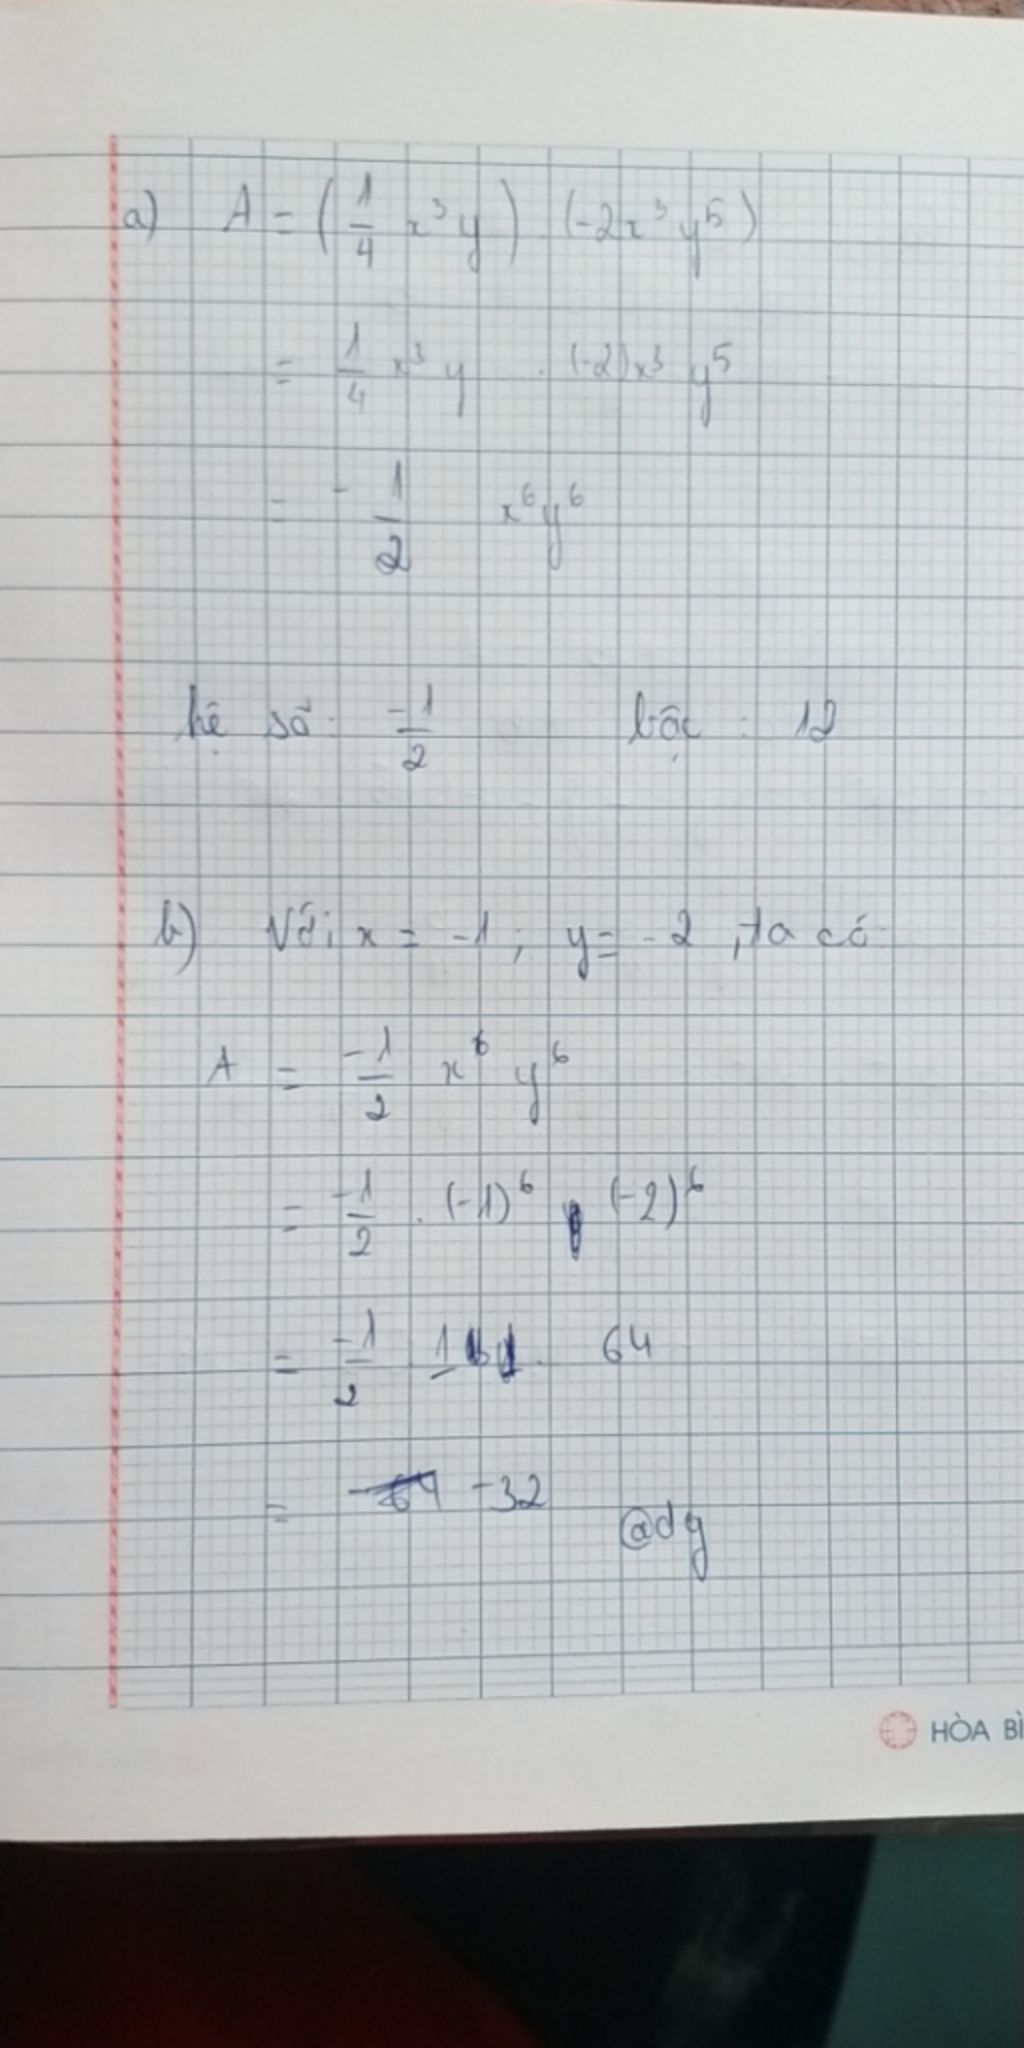 a) A = (1/4 x³y) (-2x³y⁵)
= 1/4 x³y . (-2)x³y⁵
= -1/2 x⁶y⁶
hệ số: -1/2 bậc: 12
b) Với x = -1; y = -2, ta có
A = -1/2 x⁶y⁶
= -1/2 . (-1)⁶ . (-2)⁶
= -1/2 . 1 . 64
= -32
@dy
HÒA BÌ